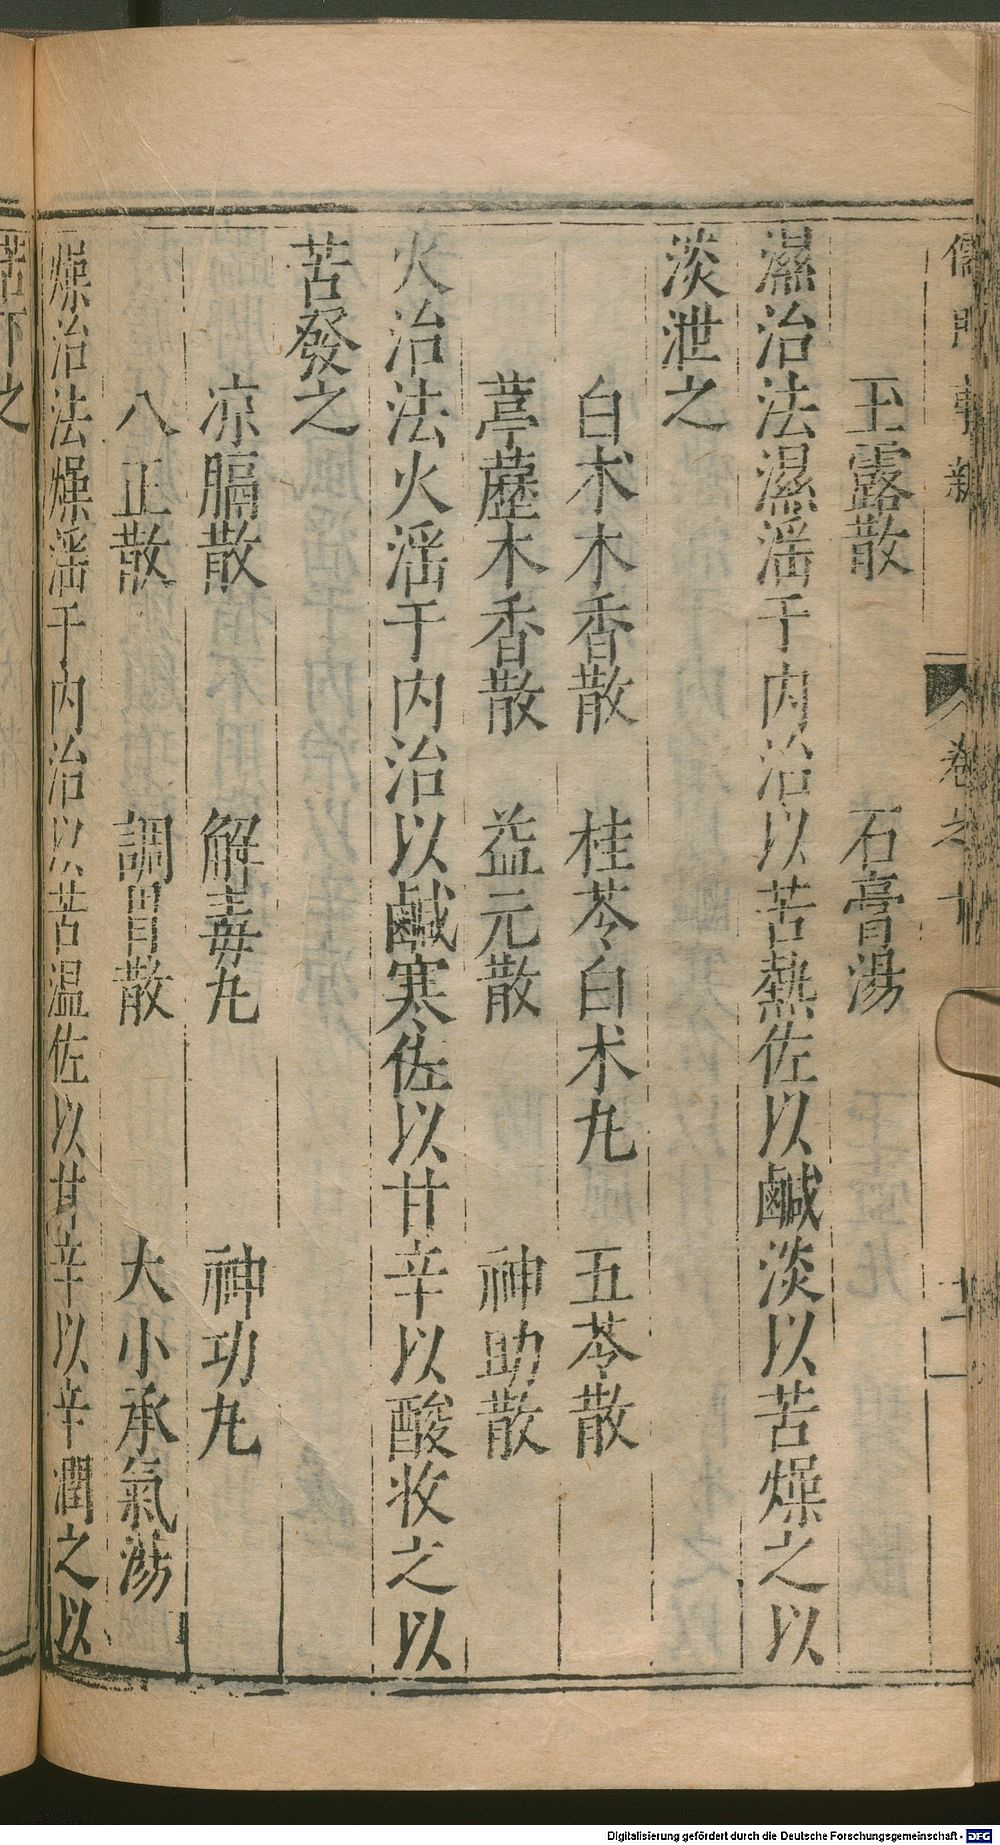 儒門事親
卷之十
十一
玉露散 石膏湯
濕治法濕淫于內治以苦熱佐以鹹淡以苦燥之以
淡泄之
白术木香散 桂苓白术丸 五苓散
葶藶木香散 益元散 神助散
火治法火淫于內治以鹹寒佐以甘辛以酸收之以
苦發之
凉膈散 解毒丸 神功丸
八正散 調胃散 大小承氣湯
燥治法燥淫于內治以苦温佐以甘辛以辛潤之以
苦下之
Digitalisierung gefördert durch die Deutsche Forschungsgemeinschaft - DFG